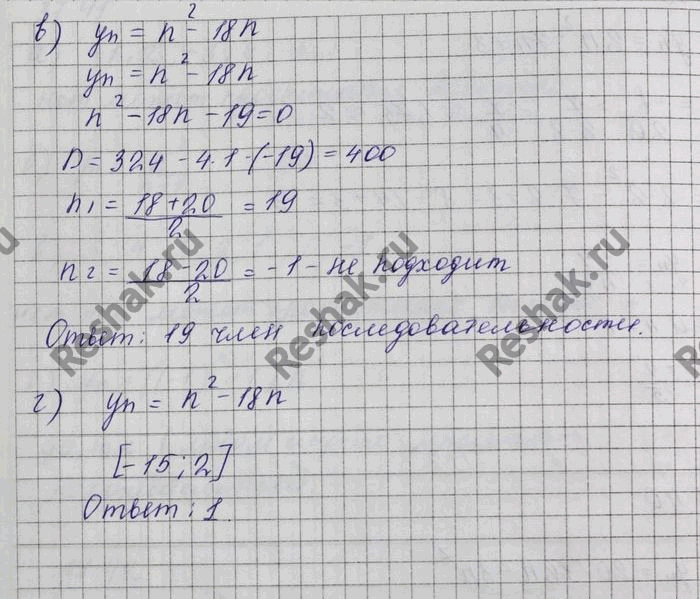 в) yn = n² - 18n
yn = n² - 18n
n² - 18n - 19 = 0
D = 324 - 4·1·(-19) = 400
n1 = (18 + 20)/2 = 19
n2 = (18 - 20)/2 = -1 - не подходит
Ответ: 19 член последовательности.
г) yn = n² - 18n
[-15; 2]
Ответ: 1.
Reshak.ru
Reshak.ru
Reshak.ru